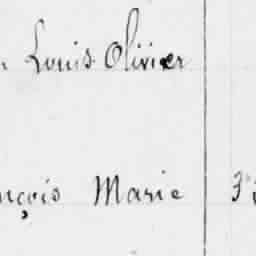 Louis Olivier
nçois Marie